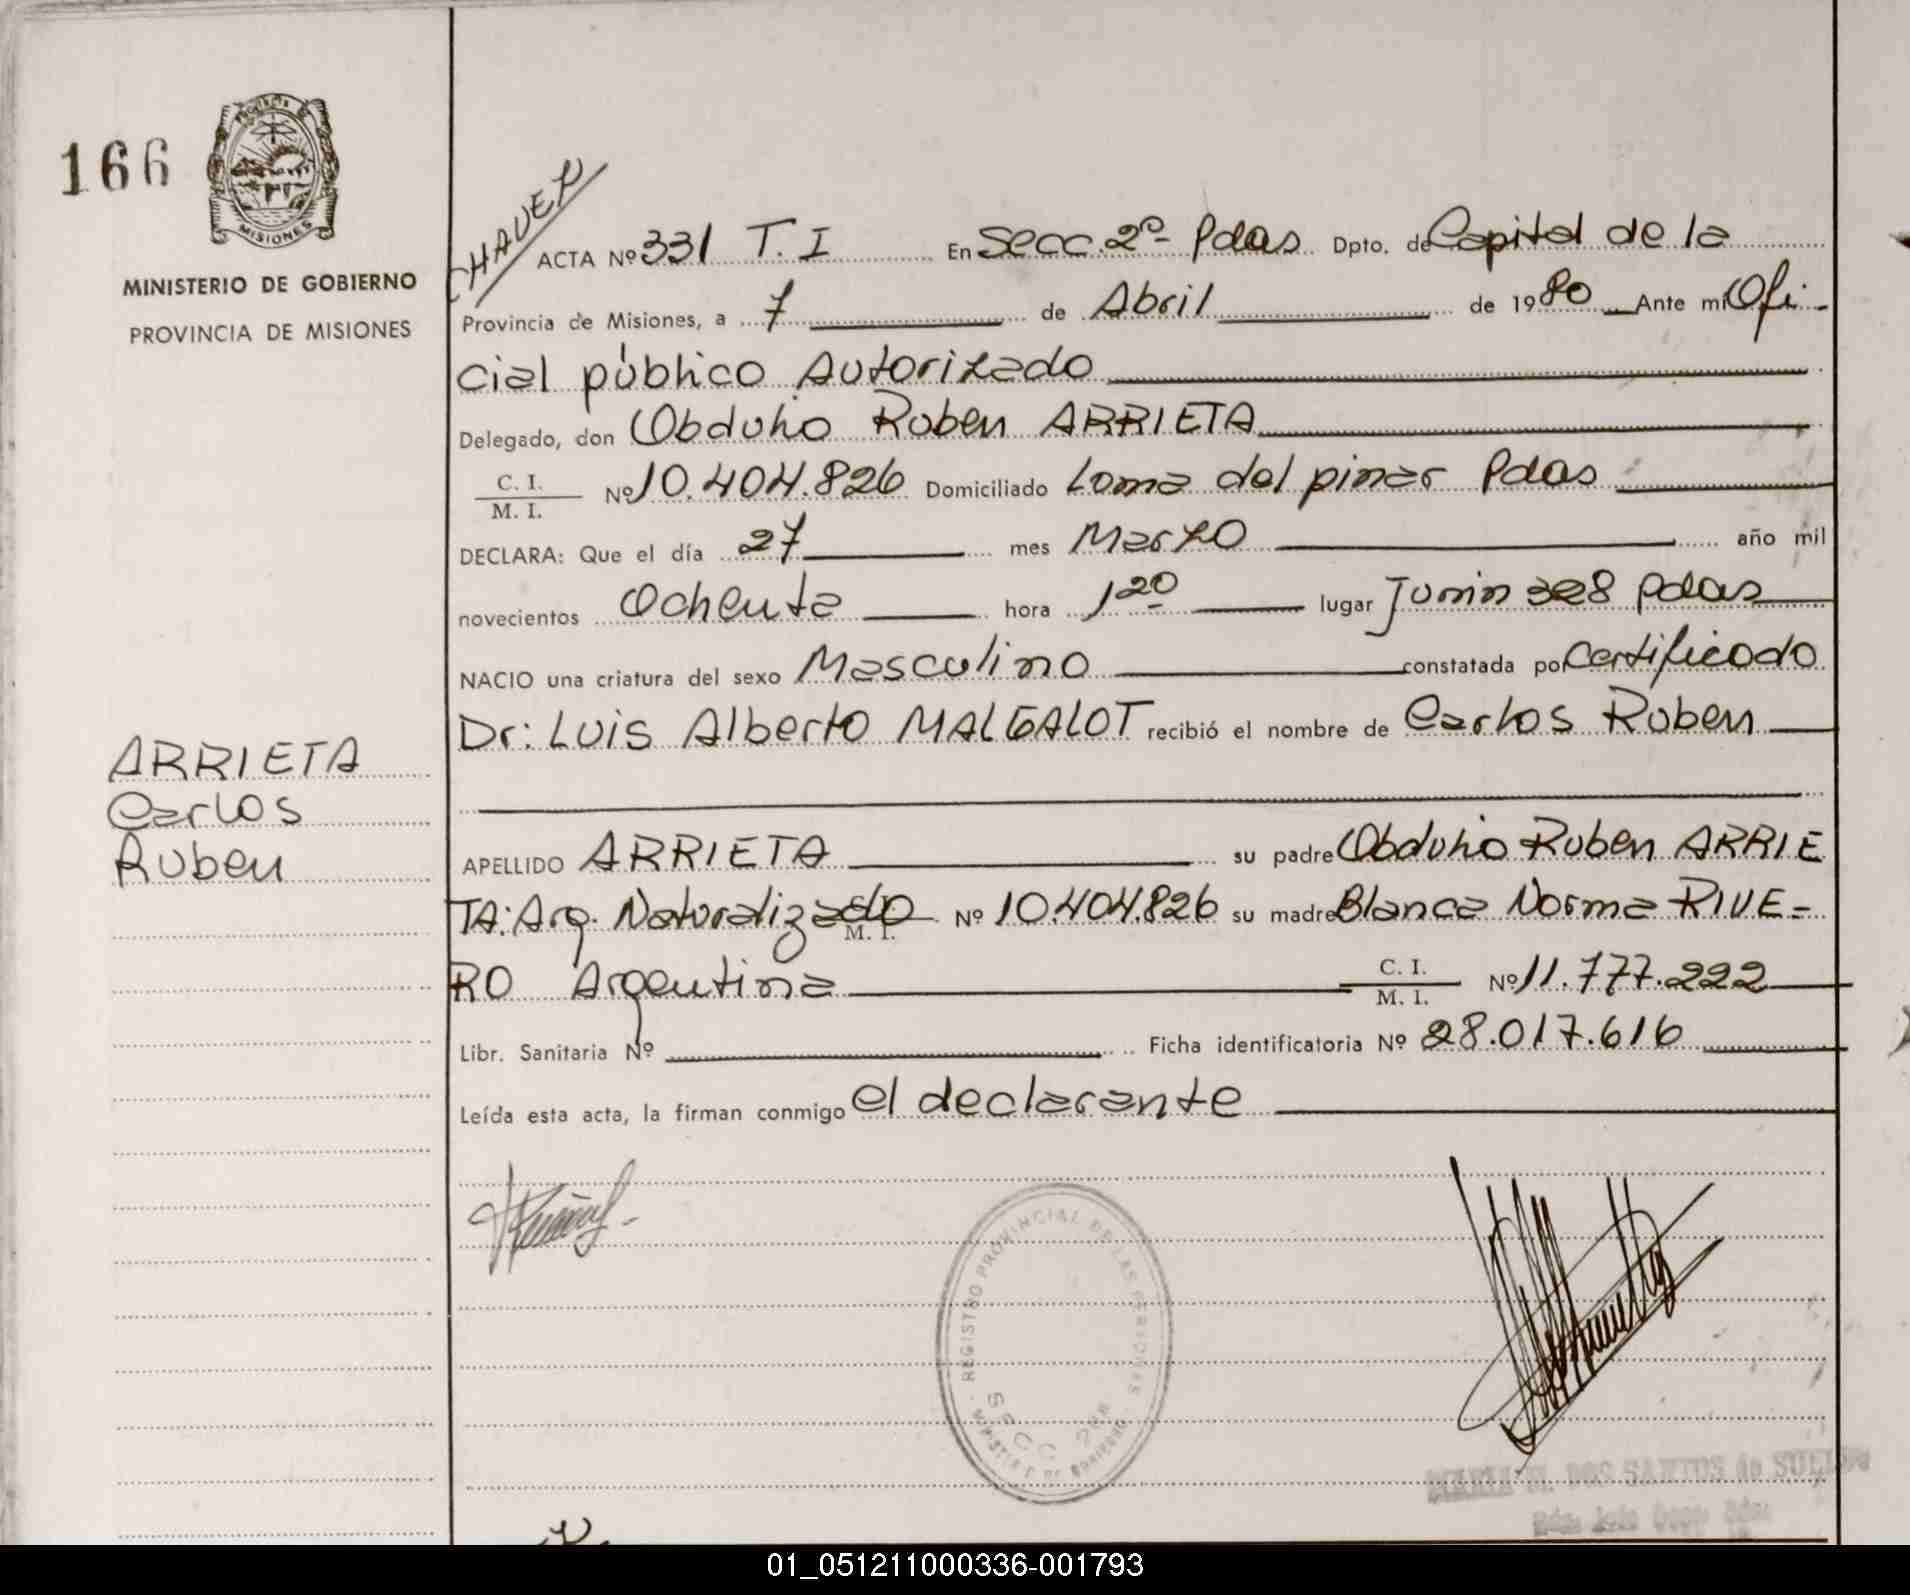 166
MISIONES
MINISTERIO DE GOBIERNO
PROVINCIA DE MISIONES
ARRIETA
Carlos
Ruben
CHAVEZ
ACTA Nº 331 T. I En Secc. 2º- Pdas Dpto. de Capital de la
Provincia de Misiones, a 7 de Abril de 1980 Ante mi Ofi-
cial público Autorizado
Delegado, don Obdulio Ruben ARRIETA
C. I.
M. I. Nº 10.404.826 Domiciliado Loma del pinar Pdas
DECLARA: Que el día 27 mes Marzo año mil
novecientos Ochenta hora 1 20 lugar Junin 328 Pdas
NACIO una criatura del sexo Masculino constatada por Certificado
Dr: LUIS Alberto MALGALOT recibió el nombre de Carlos Ruben
APELLIDO ARRIETA su padre Obdulio Ruben ARRIE
TA: Arg. Naturalizado M. I. Nº 10.404.826 su madre Blanca Norma RIVE-
RO Argentina C. I.
M. I. Nº 11.777.222
Libr. Sanitaria Nº Ficha identificatoria Nº 28.017.616
Leída esta acta, la firman conmigo el declarante
REGISTRO PROVINCIAL DE LAS PERSONAS
SECC 2da
MINISTERIO DE GOBIERNO
MARIA M. DOS SANTOS de
01_051211000336-001793